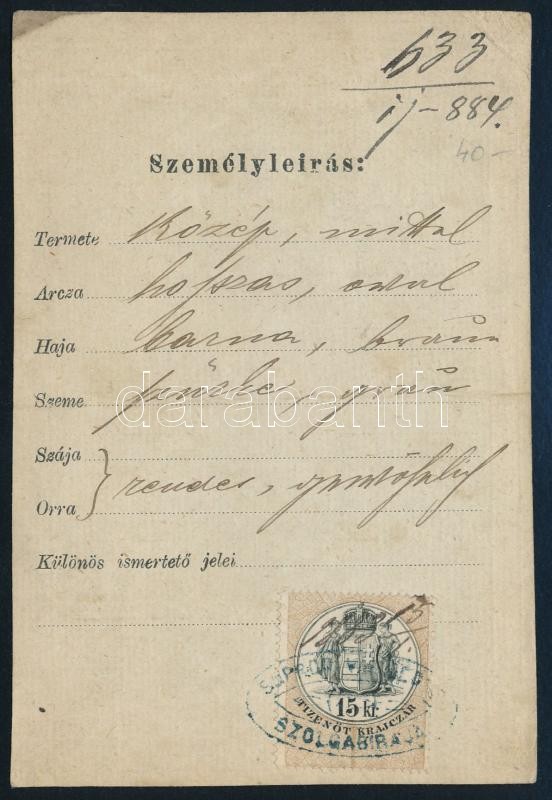 633
ij-884.
40-
Személyleirás:
Termete közép, mittel
Arcza hoszas, oval
Haja barna, braun
Szeme szürke, grau
Szája
Orra } rendes, gewöhnlich
Különös ismertető jelei
darabanth
15 kr.
TIZENÖT KRAJCZÁR
SOPRON
SZOLGABIRÁJA